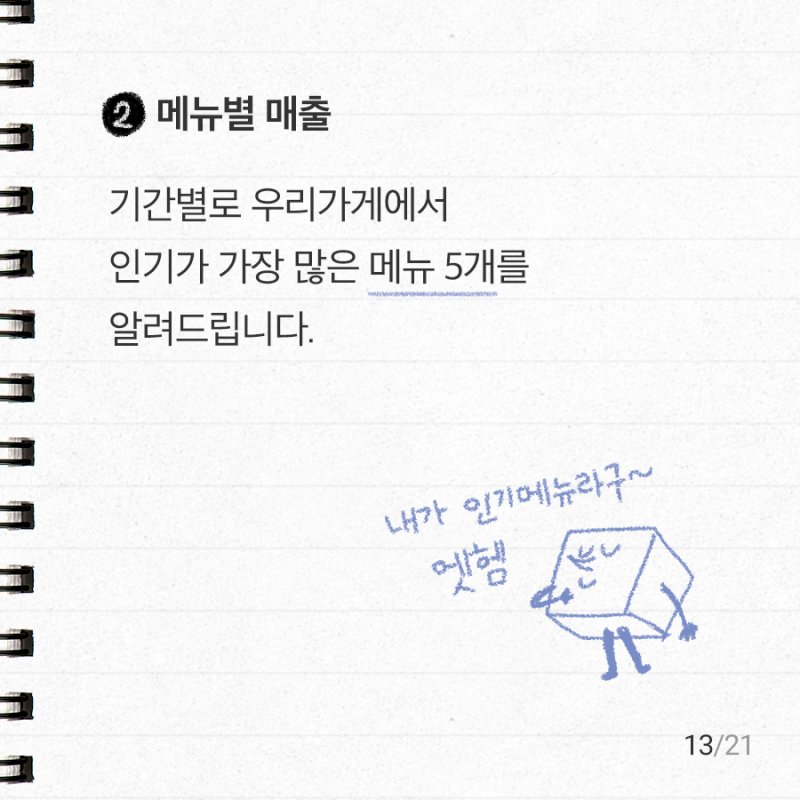 2 메뉴별 매출
기간별로 우리가게에서
인기가 가장 많은 메뉴 5개를
알려드립니다.
내가 인기메뉴라구~
엣헴
13/21